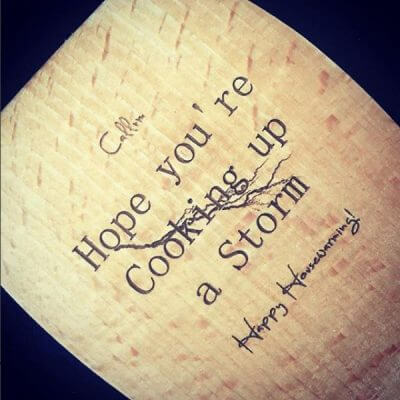 Callum
Hope you're
Cooking up
a Storm
Happy Housewarming!